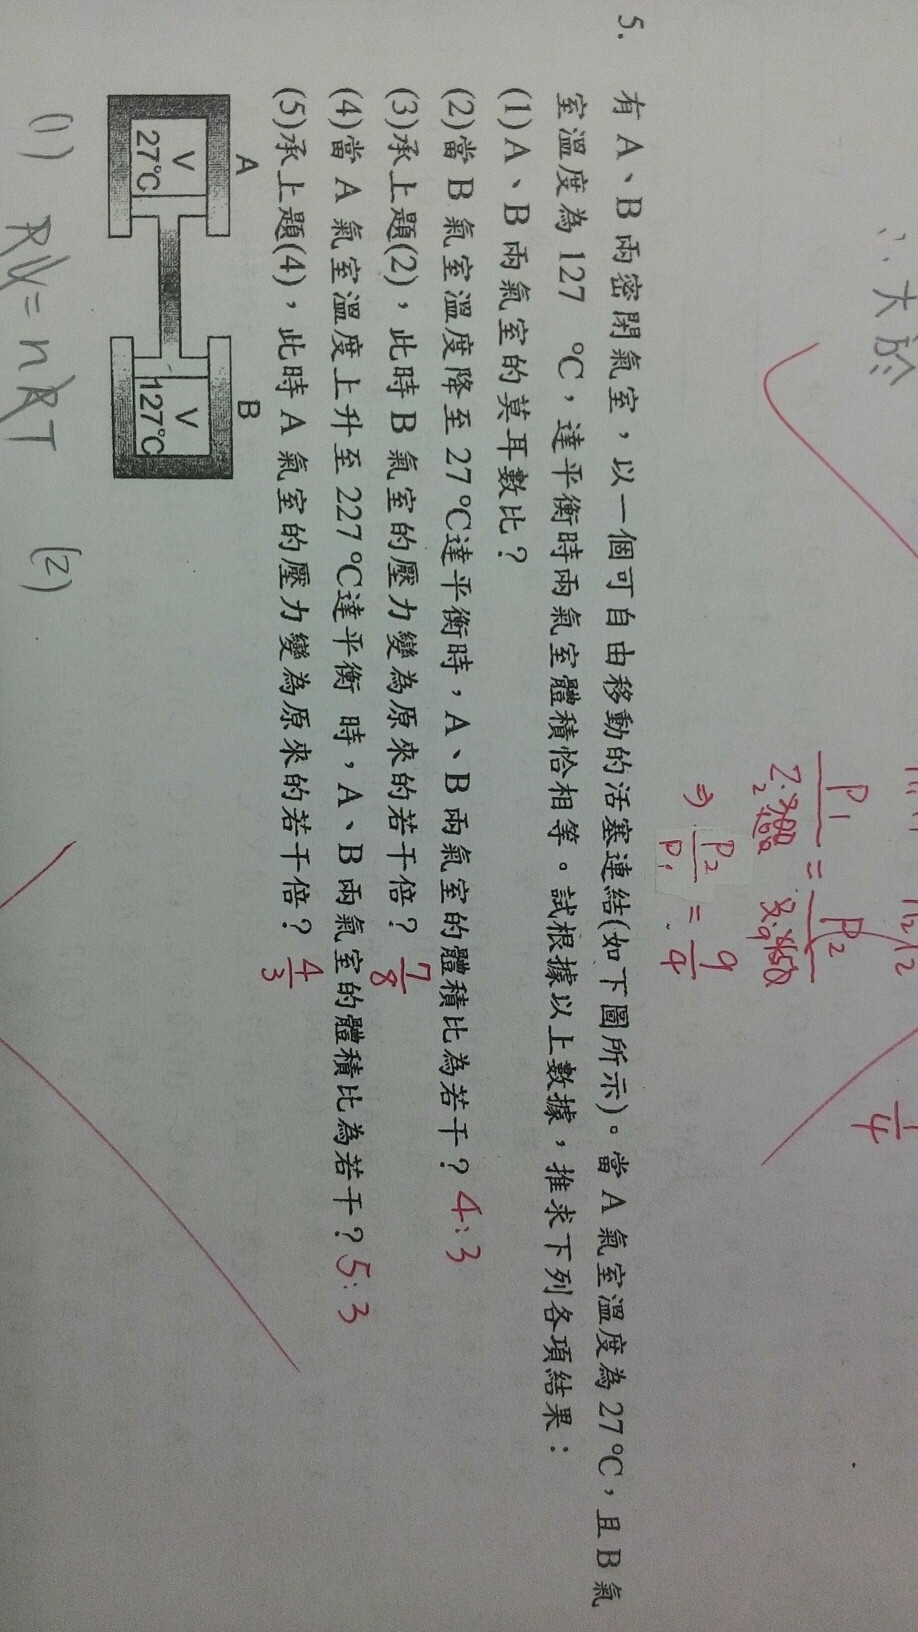 ∴大於
P₁/2·300 = P₂/3·450
⇒ P₂/P₁ = 9/4
1/4
5. 有A、B兩密閉氣室，以一個可自由移動的活塞連結(如下圖所示)。當A氣室溫度為27℃，且B氣
室溫度為127 ℃，達平衡時兩氣室體積恰相等。試根據以上數據，推求下列各項結果：
(1)A、B兩氣室的莫耳數比？
(2)當B氣室溫度降至27℃達平衡時，A、B兩氣室的體積比為若干？4:3
(3)承上題(2)，此時B氣室的壓力變為原來的若干倍？7/8
(4)當A氣室溫度上升至227℃達平衡 時，A、B兩氣室的體積比為若干？5:3
(5)承上題(4)，此時A氣室的壓力變為原來的若干倍？4/3
A B
V V
27℃ 127℃
(1) PV=nRT (2)